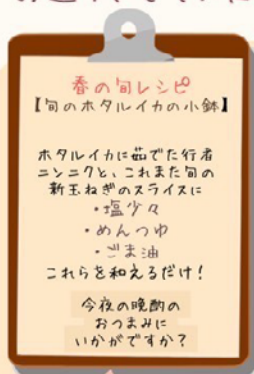 春の旬レシピ
【旬のホタルイカの小鉢】
ホタルイカに茹でた行者
ニンニクと、これまた旬の
新玉ねぎのスライスに
・塩少々
・めんつゆ
・ごま油
これらを和えるだけ!
今夜の晩酌の
おつまみに
いかがですか?